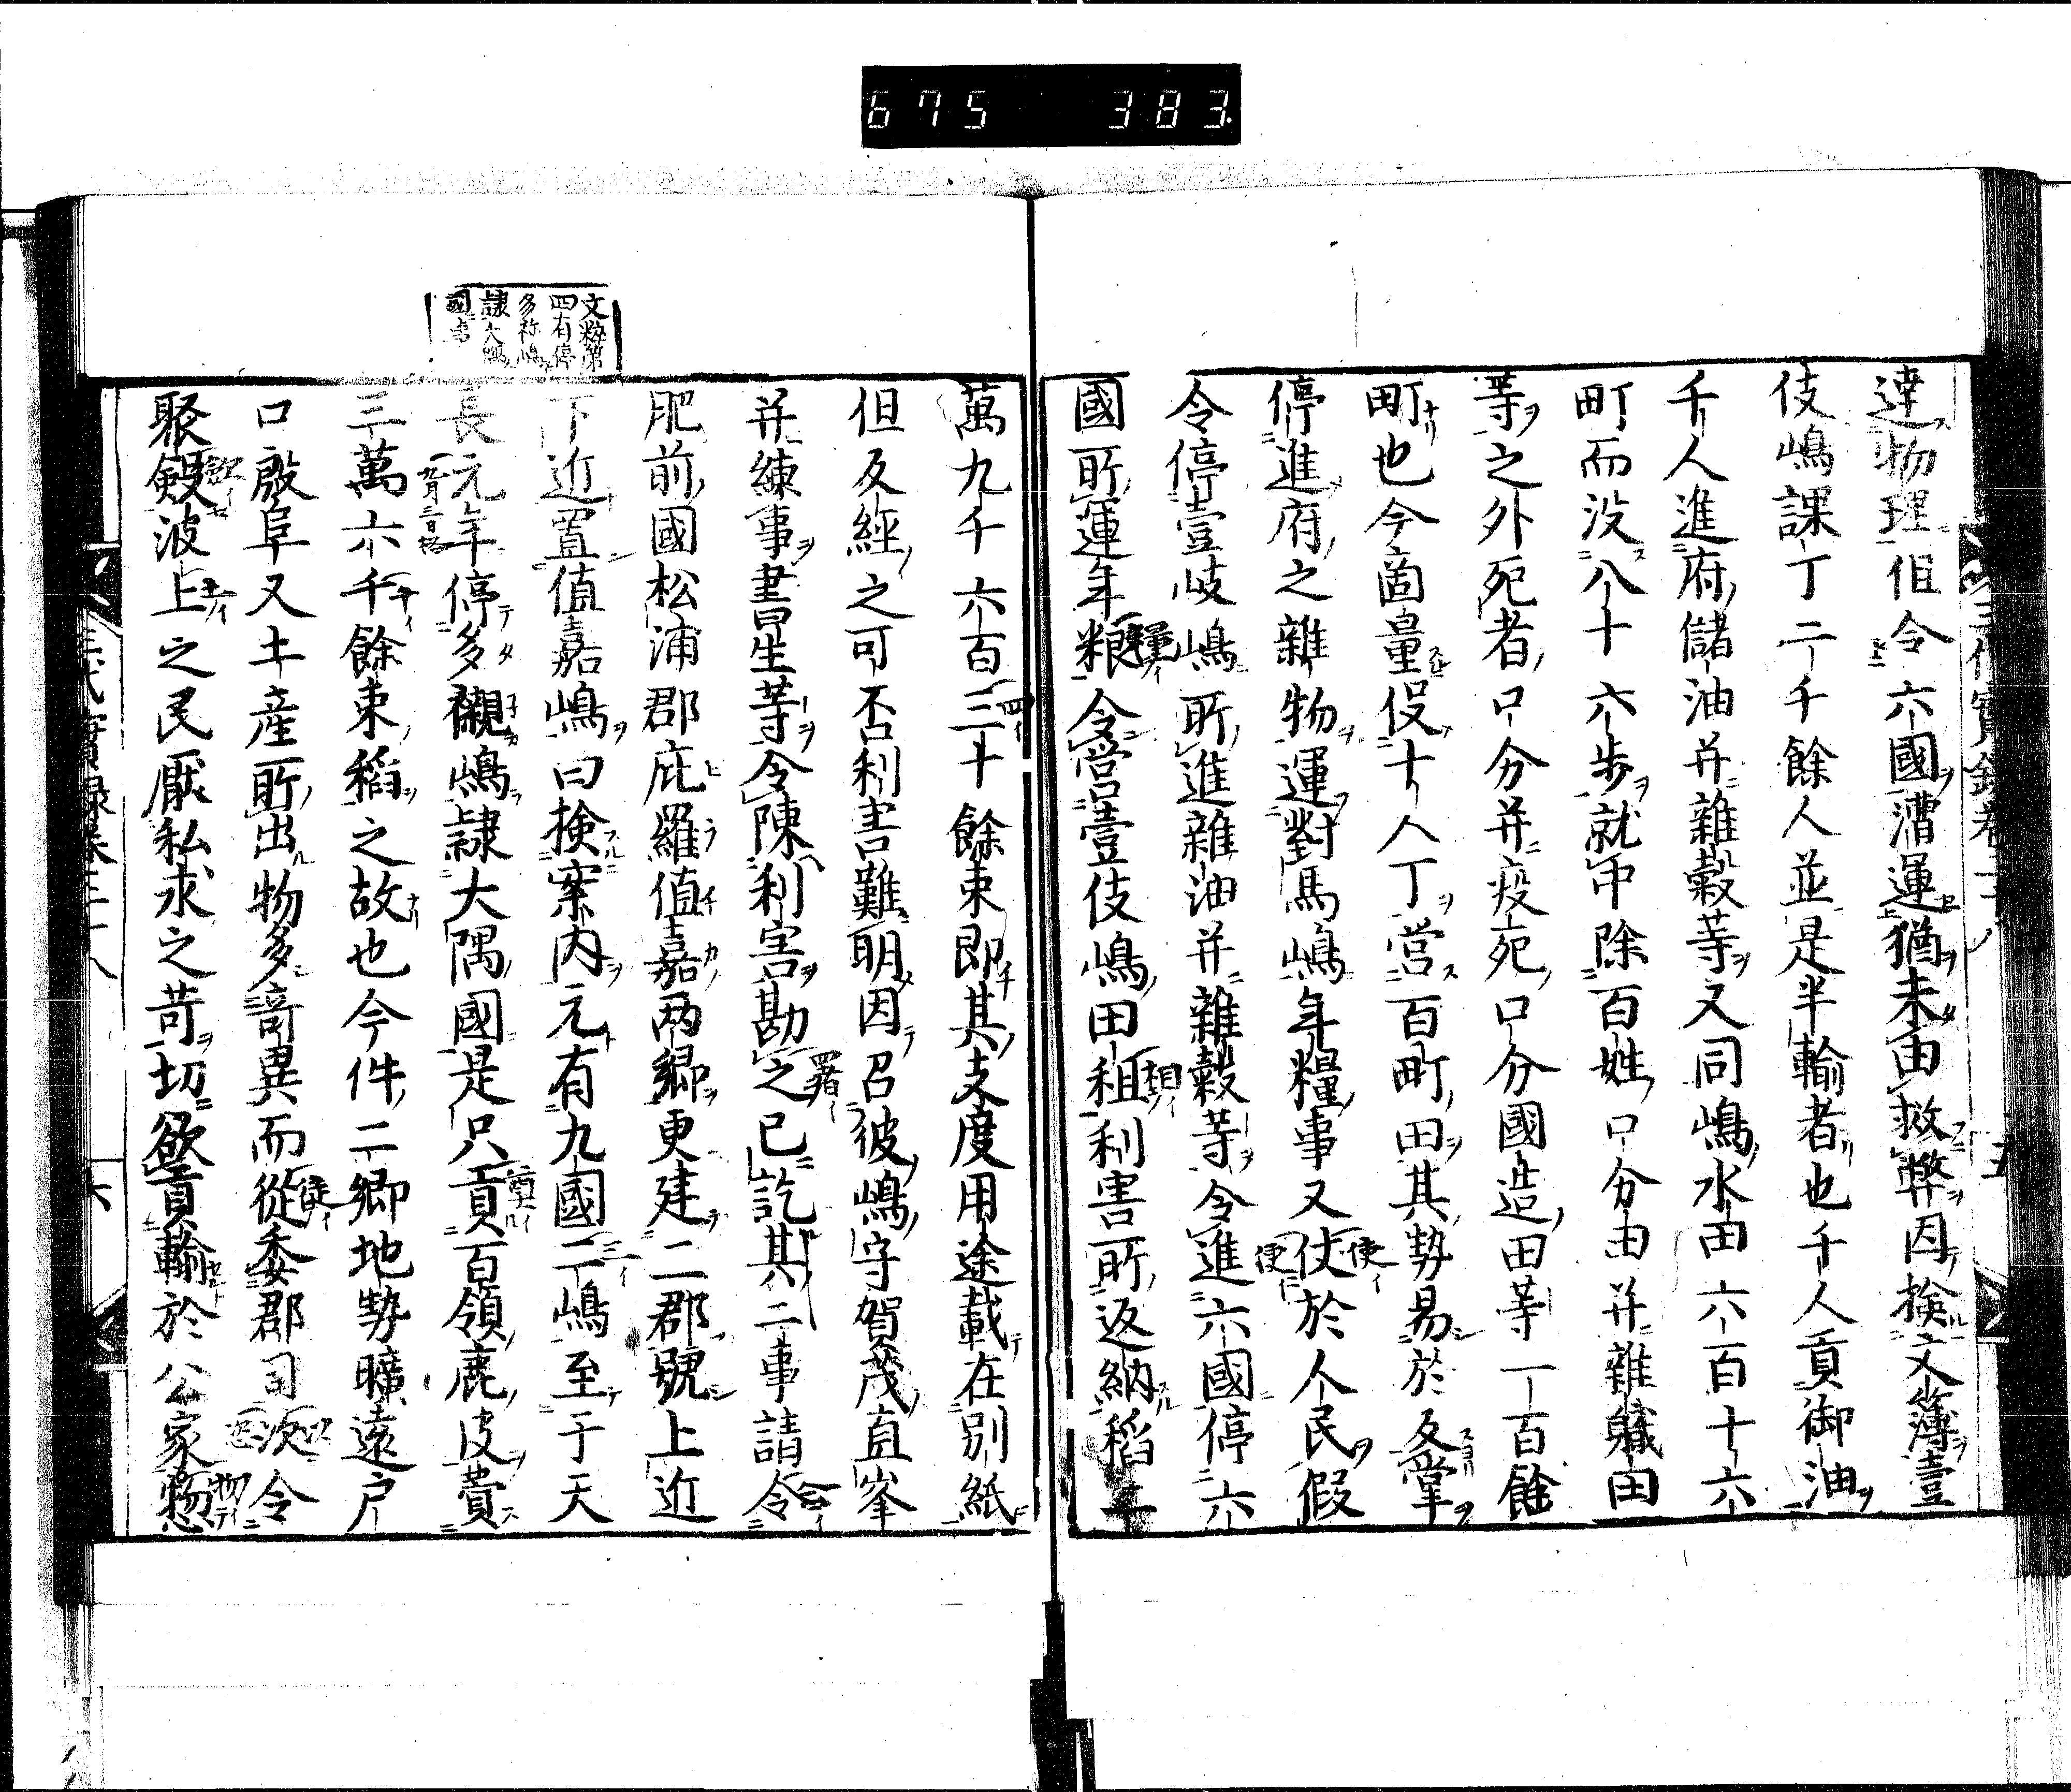 675 383
達物理但令六國漕運猶未由救弊因檢文簿壹
伎嶋課丁二千餘人並是半輸者也千人貢御油
千人進府儲油并雜穀等又同嶋水田六百十六
町而没八十六步就中除百姓口分田并雜職田
等之外死者口分并疫死口分國造田等一百餘
町也今商量役十人丁營百町田其勢易於反掌
停進府之雜物運對馬嶋年糧事又仗於人民假
令停壹岐嶋所進雜油并雜穀等令進六國停六
國所運年粮令営壹伎嶋田租利害所返納稻二
萬九千六百三十餘束即其支度用途載在別紙
但反經之可否利害難明因召彼嶋守賀茂直峯
并練事書生等令陳利害勘之已訖其二事請令
肥前國松浦郡庇羅值嘉兩鄉更建二郡號上近
下近置值嘉嶋曰檢案内元有九國二嶋至于天
長元年停多襯嶋隷大隅國是只貢百領鹿皮費
三萬六千餘束稻之故也今件二鄉地勢曠遠戶
口殷阜又土産所出物多奇異而從委郡司次令
聚斂波上之民厭私求之苛切欲貢輸於公家惣
文粹第
四有停
多祢嶋
隷大隅
國書
三代實録卷二十八
五
三代實録卷二十八
六